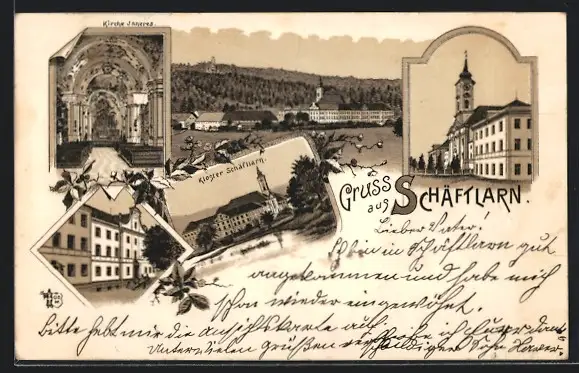 Kirche Inneres.
Kloster Schäftlarn.
Gruss aus Schäftlarn.
Lieber Vater!
Bin in Schäftlarn gut
angekommen und habe mich
schon wieder eingewöhnt.
Bitte hebt mir die Ansichtskarte auf.
Unter vielen Grüßen Sohn